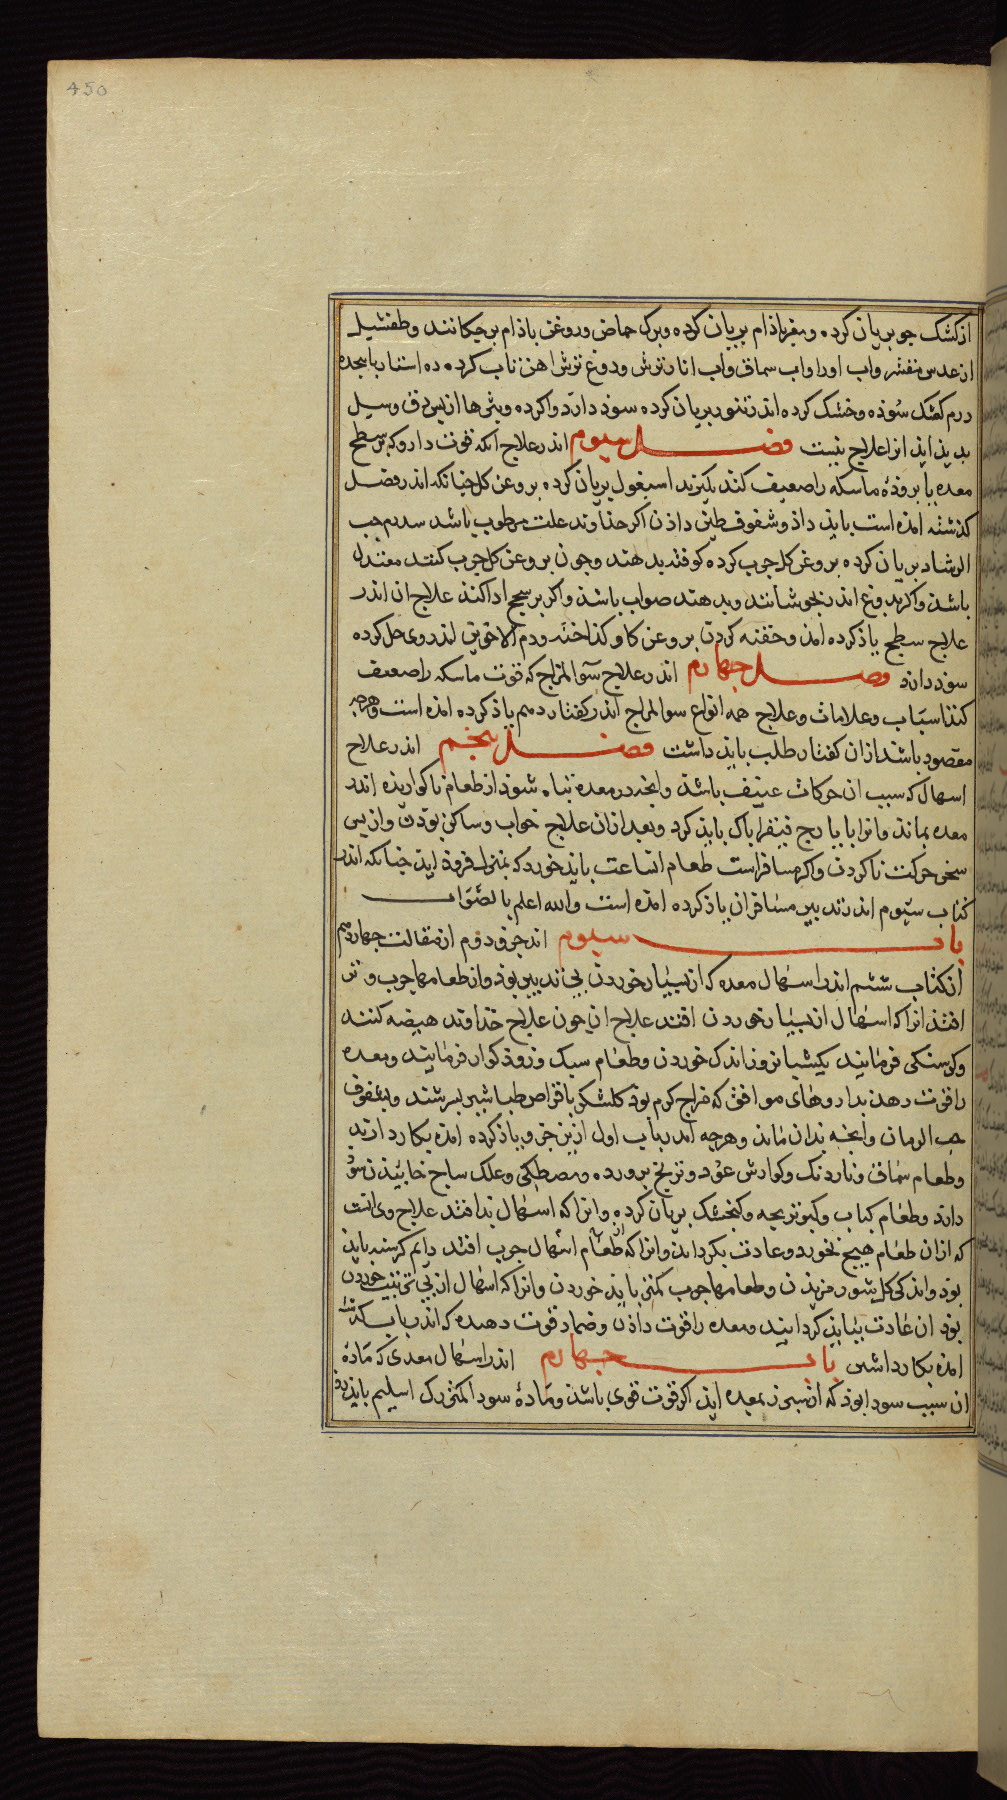 450
از کشک جو بریان کرده و مغز باذام بریان کرده و برک حماض و روغن باذام بر چکانند و طفشیل
از عدس مقشر واب اوراواب سماق واب انار ترش و دوغ ترش اهن تاب کرده ده استار با پنجده
درم کشک سوذه و خشک کرده اندر تنور بریان کرده سوذ دارد واکر ده و بثرها از پس
بدید اید انرا علاج نیست فصل سیوم اندر علاج انکه قوت دارو که بر سطح
معده یا بروذهٔ ماسکه را ضعیف کند بکیرند اسبغول بریان کرده بروغن کل چنانکه اندر فصل
کذشته امذه است بایذ داذ و شفوف طین داذن اکر خداوند علت مرطوب باشد سه درم حب
الرشاد بریان کرده بروغن کل جرب کرده کوفته بدهند و جون بروغن کل جرب کنند معتدل
باشذ واکر بدوغ اندر بجوشانند و بدهند صواب باشذ واکر بر سحج ادا کنذ علاج ان اندر
علاج سطح یاذ کرده امذ و حقنه کردن بروغن کاو کذاخته و دم الاخوین اندر وی حل کرده
سوذ دارد فصل جهارم اندر علاج سوٓ المزاج که قوت ماسکه را ضعیف
کند اسباب و علامات و علاج همه انواع سوالمزاج اندر کفتار دهم یاذ کرده امذه است و هرجه
مقصود باشد ازان کفتار طلب بایذ داشت فصل پنجم اندر علاج
اسهال که سبب ان حرکات عنیف باشذ و انجه در معده تباه شوذ از طعام ناکواریذه اندر
معده بماند و انرا بایارج فیقرا پاک بایذ کرد و بعد ازان علاج خواب و ساکن بوذن و از پس
سخن حرکت ناکردن واکر مسافر است طعام انساعت بایذ خورد که بمنزل فروذ ایذ جنانکه اندر
کتاب سیوم اندر تدبیر مسافران یاذ کرده امذه است والله اعلم بالصواب
باب سیوم اندر جزو دوم از مقالت جهاردهم
از کتاب ششم اندر اسهال معده که از بسیار خوردن بی تدبیر بوذ و از طعامها جرب و تر
افتذ انرا که اسهال از بسیار خوردن افتد علاج ان جون علاج خداوند هیضه کنند
و کرسنکی فرمایند یکشبانروز اندک خوردن و طعام سبک و زوذ کوار فرمایند و معده
را قوت دهند بداروهای موافق که مزاج کرم بوذ کلشکر با قراص طباشیر بسرشند و بسفوف
حب الرمان و انجه بدان ماند و هرجه اندر باب اول ازین جزو یاذ کرده امذه بکار دارند
و طعام سماق و ناردنک و کوارش عود و ترنج پرورده و مصطکی و علک خاییذن سوذ
دارد و طعام کباب و کبوتر بجه و کنجشک بریان کرده و انرا که اسهال بد افتد علاج وی انست
که ازان طعام هیچ نخورد و عادت بکرداند و انرا که از طعام اسهال جرب افتد دایم کرسنه بایذ
بوذ و اندکی کل شور مزیذن و طعامها جرب کمتر بایذ خوردن و انرا که اسهال از بی ترتیب خوردن
بوذ ان عادت ببایذ کردایند و معده را قوت داذن و ضماد قوت دهنده که اندر باب کذشته
امذه بکار داشتن باب جهارم اندر اسهال معدی که مادهٔ
ان سبب سودا بوذ که از سپرز بمعده ایذ اکر قوت قوی باشذ و مادهٔ سودا کمتر رک اسلیم بایذ زد